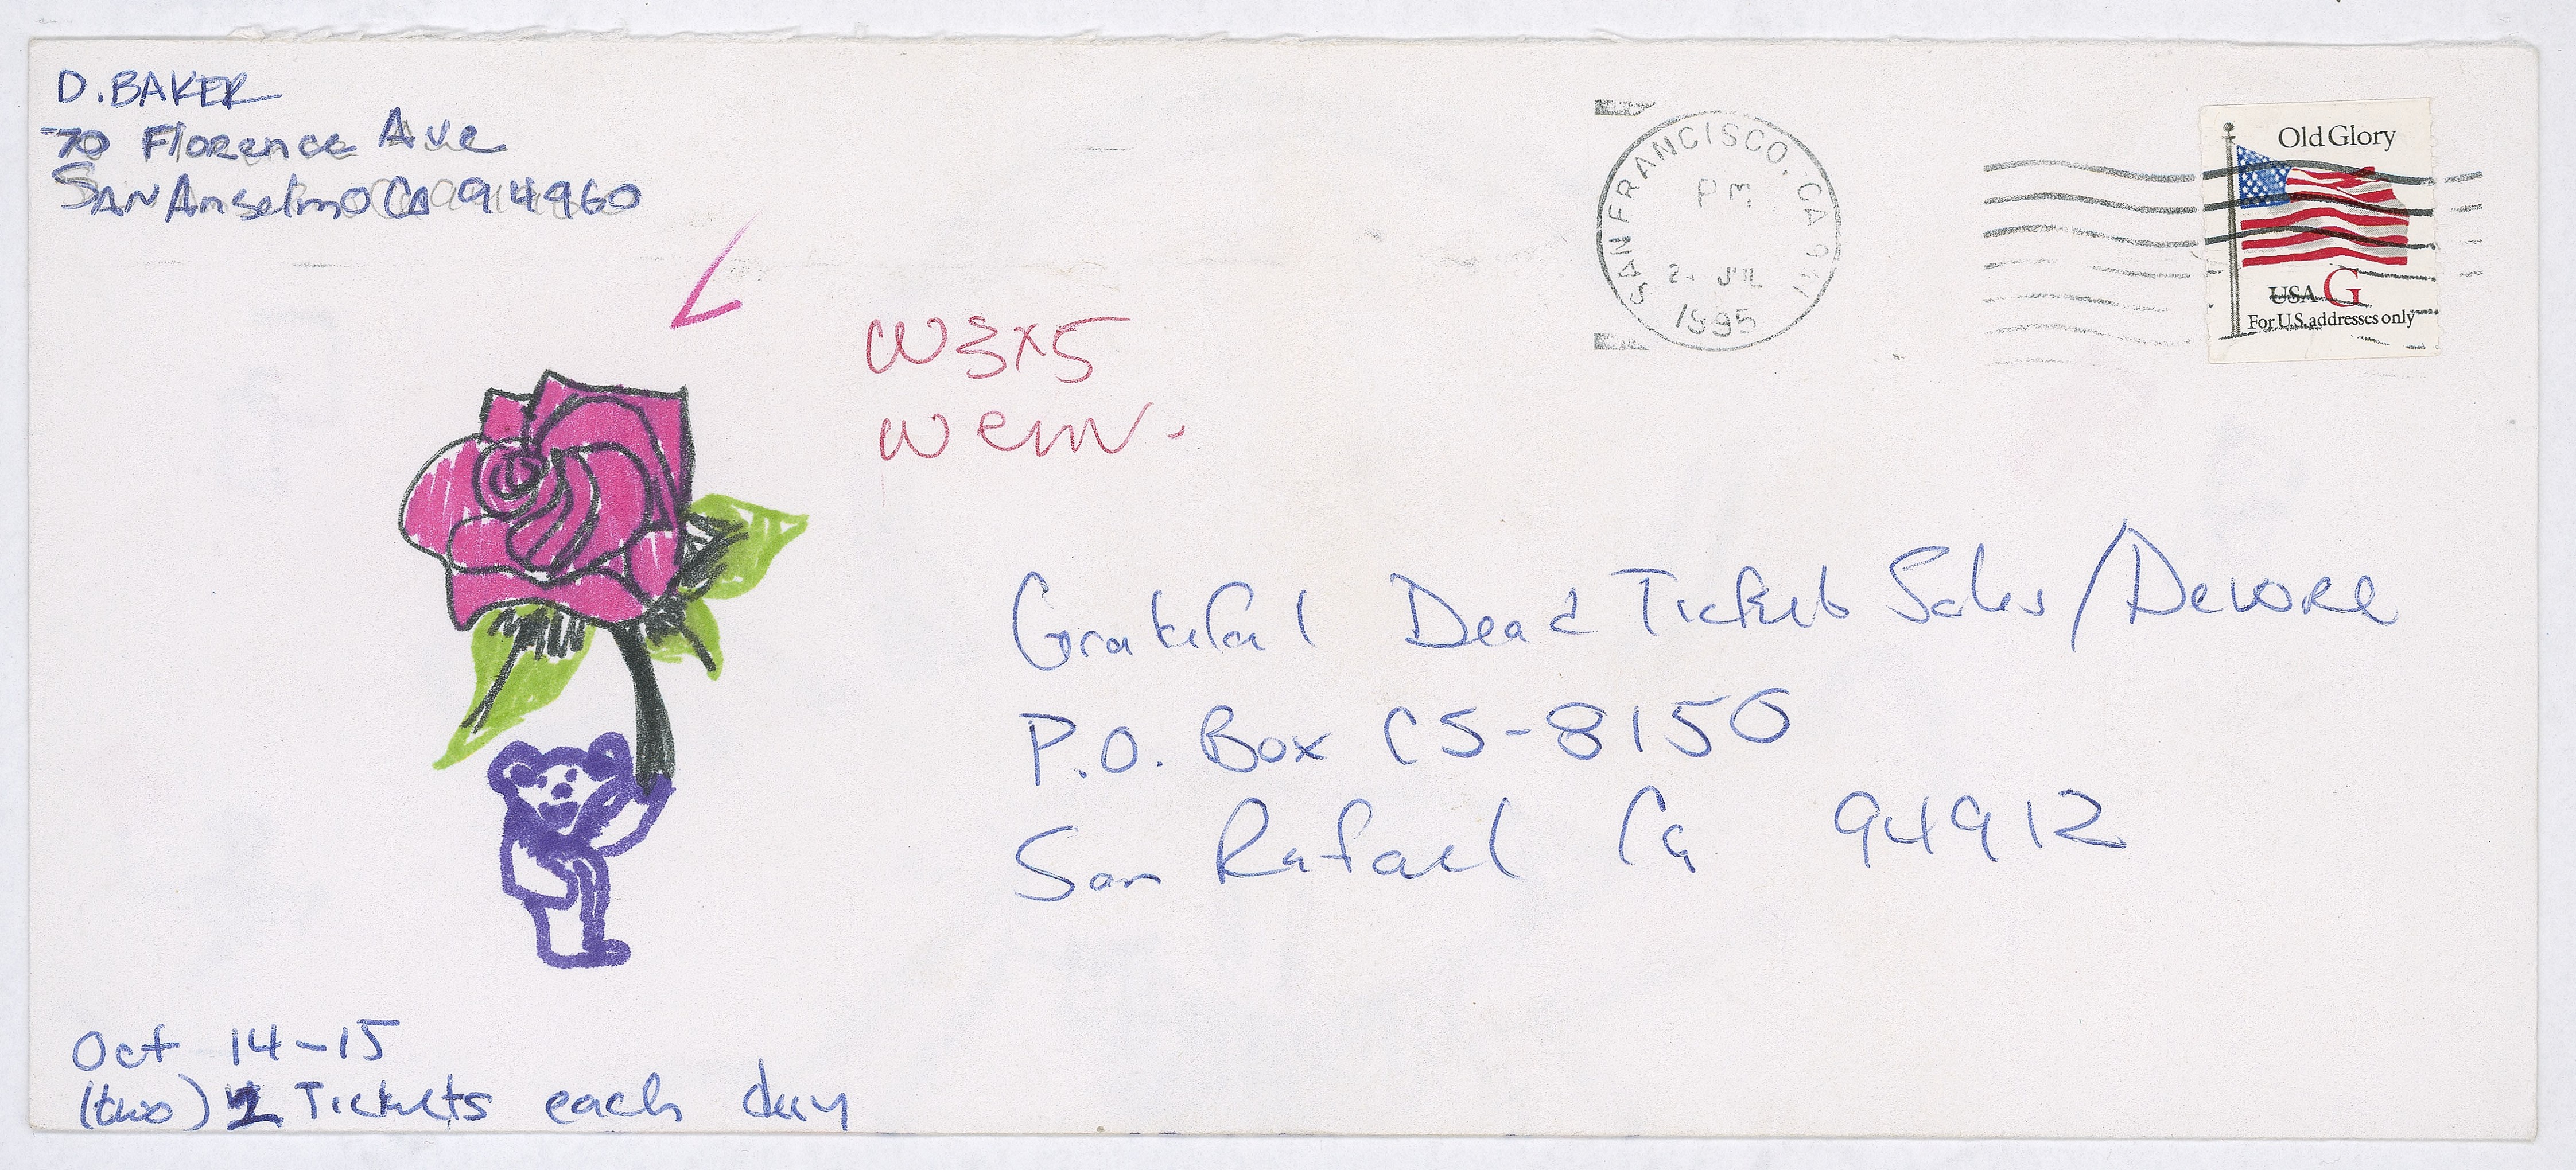 D. BAKER
70 Florence Ave
SAN Anselmo Ca 94960
SAN FRANCISCO, CA 941
PM
JUL
1995
Old Glory
USA G
For U.S. addresses only
W 3x5
W env.
Grateful Dead Tickets Sales/Devore
P.O. Box CS-8150
San Rafael Ca 94912
Oct 14-15
(two) 2 Tickets each day